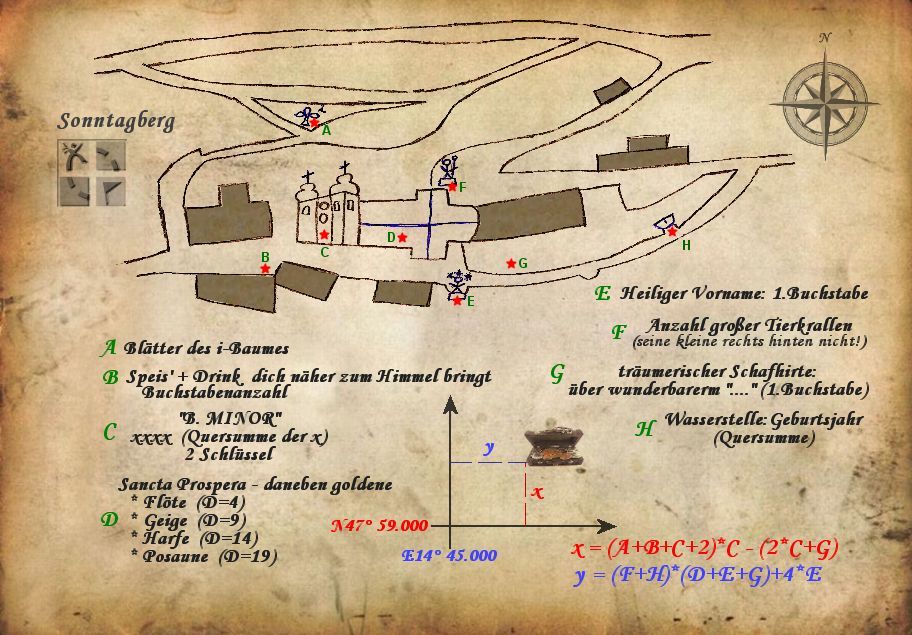 N
Sonntagberg
A
F
B
C
D
E
G
H
E Heiliger Vorname: 1.Buchstabe
F Anzahl großer Tierkrallen
(seine kleine rechts hinten nicht!)
A Blätter des i-Baumes
B Speis' + Drink dich näher zum Himmel bringt
Buchstabenanzahl
G träumerischer Schafhirte:
über wunderbarerm "...." (1.Buchstabe)
C "B. MINOR"
xxxx (Quersumme der x)
2 Schlüssel
H Wasserstelle: Geburtsjahr
(Quersumme)
y
x
Sancta Prospera - daneben goldene
D * Flöte (D=4)
* Geige (D=9)
* Harfe (D=14)
* Posaune (D=19)
N47° 59.000
E14° 45.000
x = (A+B+C+2)*C - (2*C+G)
y = (F+H)*(D+E+G)+4*E